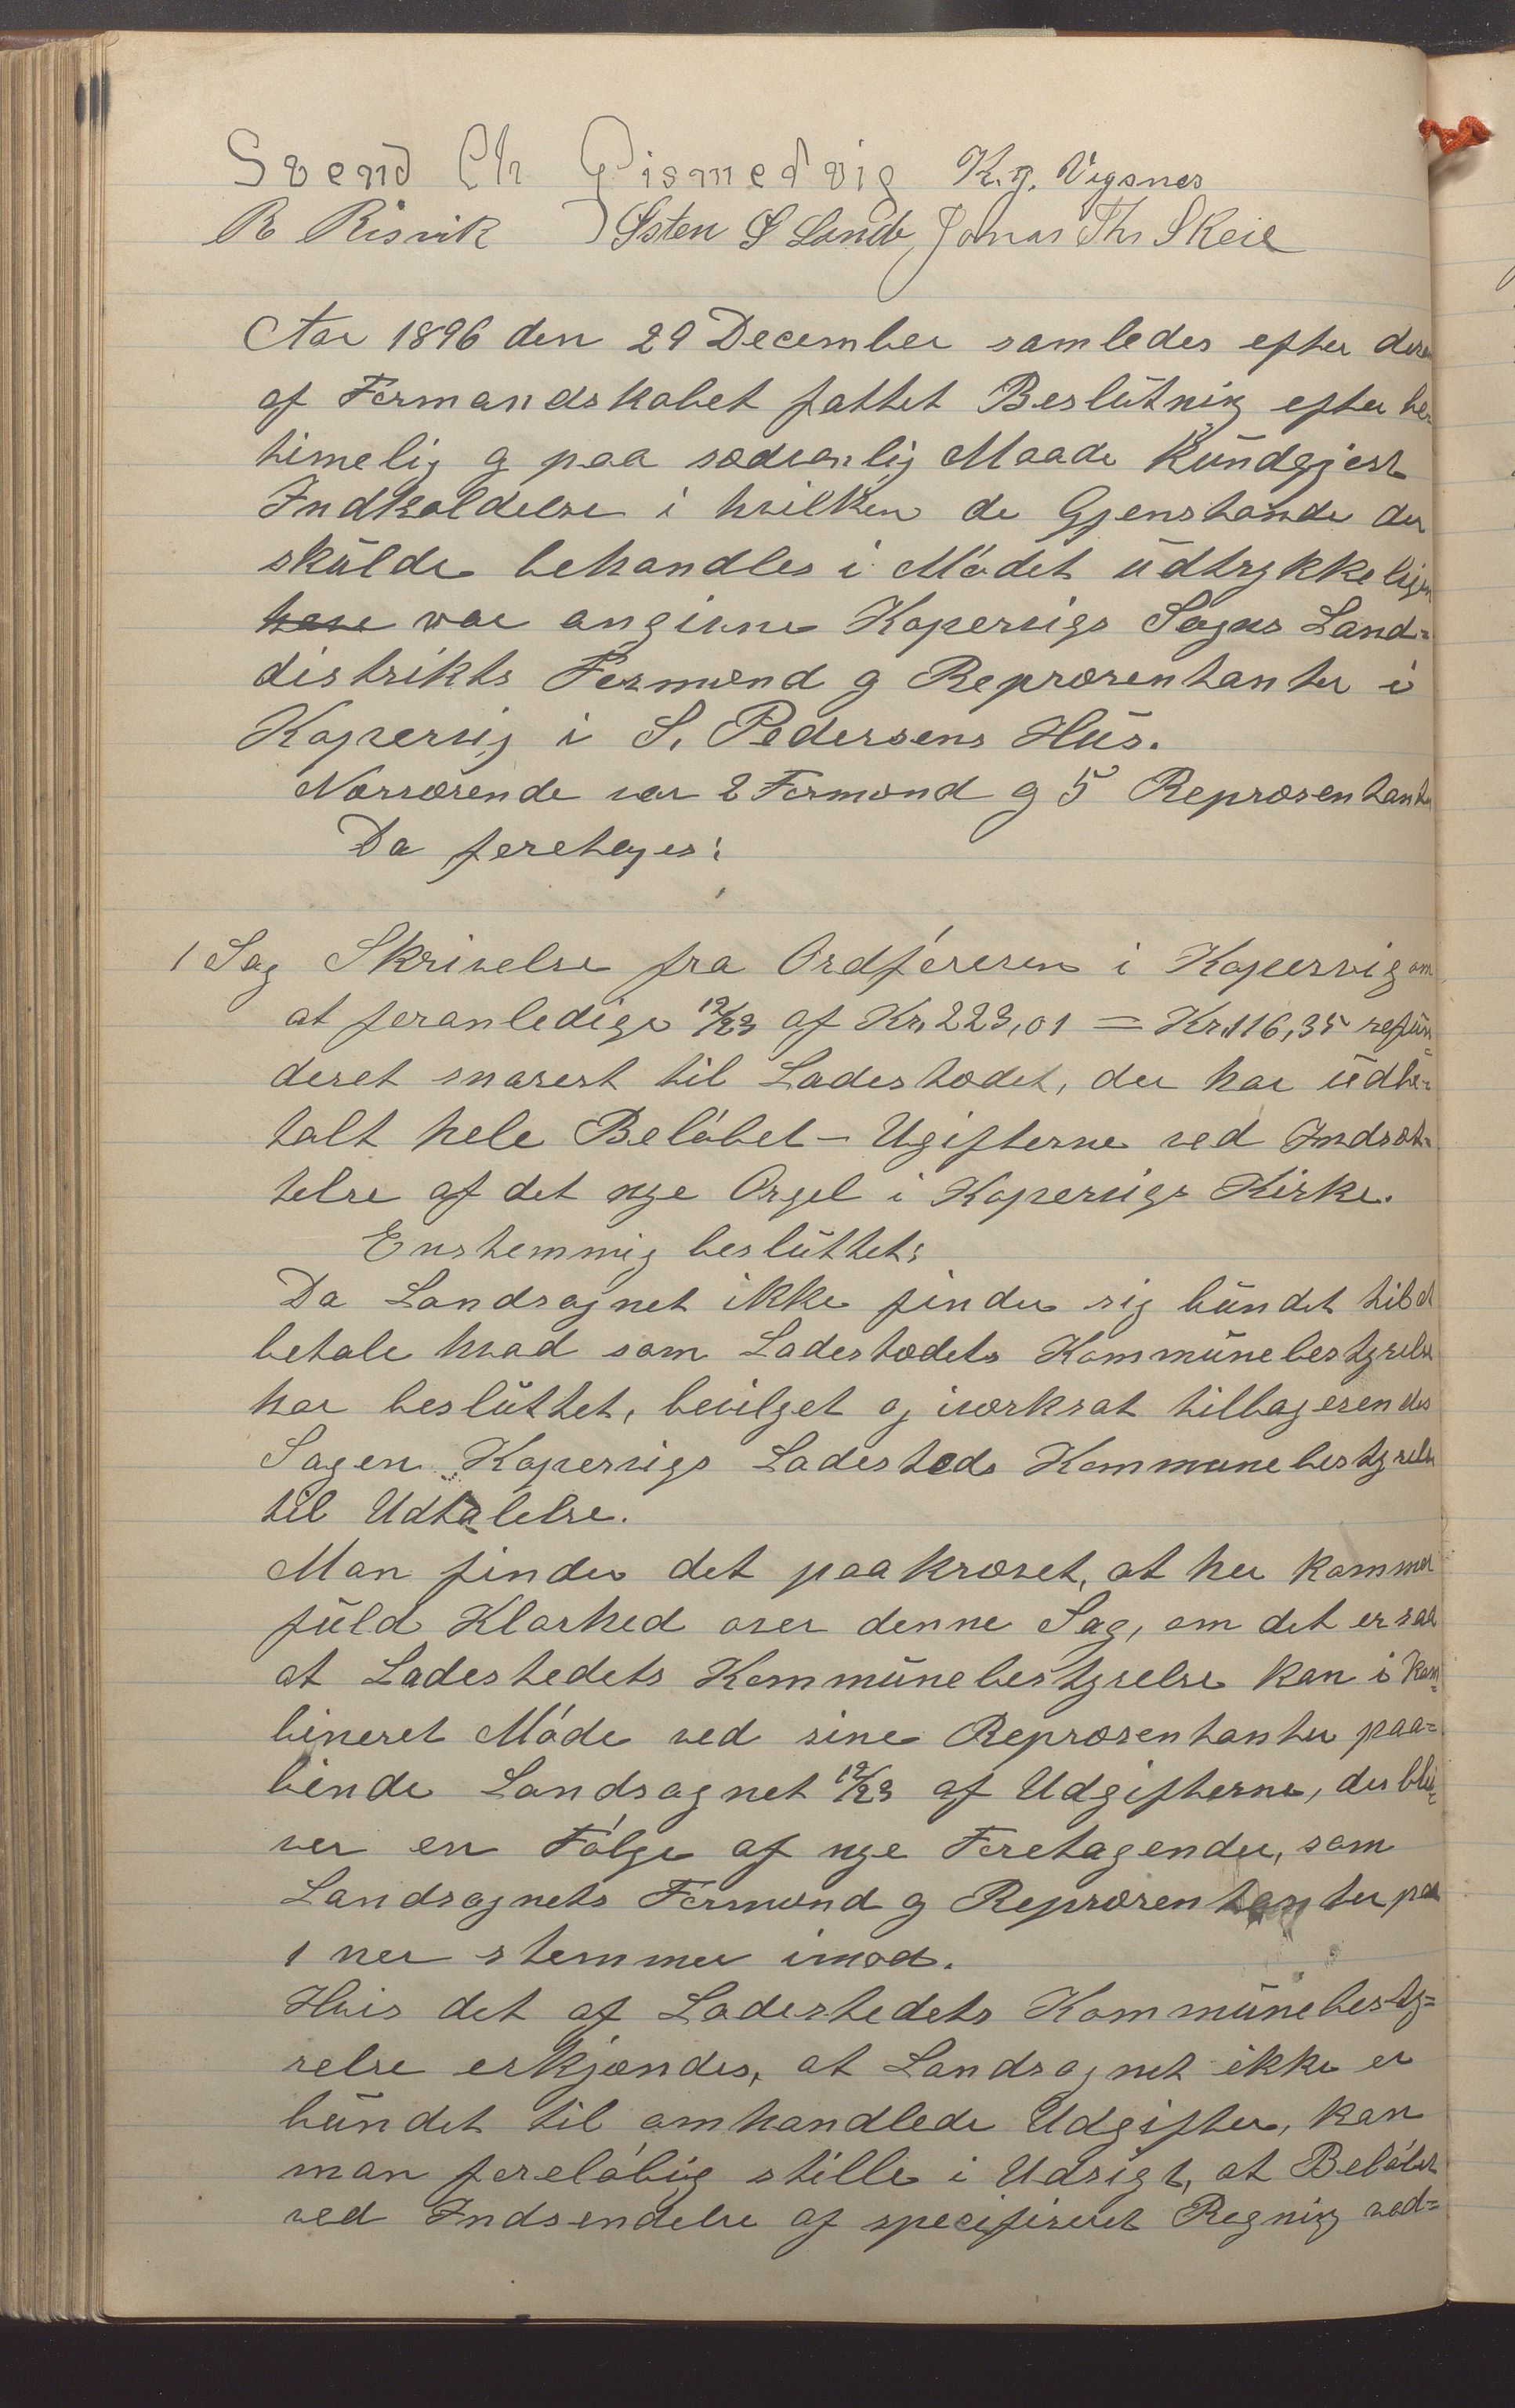 Svend Ch Gismervig K. G. Vigsnes
R Risvik Østen S Lande Jonas Ths Skeie
Aar 1896 den 29 December samledes efter derom
af Formandskabet fattet Beslutning efter be-
timelig og paa sædvanlig Maade kundgjort
Indkaldelse i hvilken de Gjenstande der
skulde behandles i Mødet udtrykkeligen
have var angivne Kopervigs Sogns Land=
distrikts Formænd og Repræsentanter i
Kopervig i S. Pedersens Hus.
Nærværende var 2 Formænd og 5 Repræsentanter
Da foretoges:
1 Sag Skrivelse fra Ordføreren i Kopervig om
at foranledige 12/23 af Kr. 223,01 = Kr. 116,35 refun=
deret snarest til Ladestædet, der har udbe-
talt hele Beløbet – Ugifterne ved Indsæt-
telse af det nye Orgel i Kopervigs Kirke.
Enstemmig besluttet:
Da Landsognet ikke finder sig bundet til at
betale hvad som Ladestædets Kommunebestyrelse
har besluttet, bevilget og iværksat tilbagesendes
Sagen Kopervigs Ladesteds Kommunebestyrelse
til Udtalelse.
Man finder det paakrævet, at her kommer
fuld Klarhed over denne Sag, om det er saa
at Ladestedets Kommunebestyrelse kan i kom=
bineret Møde ved sine Repræsentanter paa=
binde Landsognet 12/23 af Udgifterne, der bli-
ver en Følge af nye Foretagender, som
Landsognets Formænd og Repræsentanter paa
1 nær stemmer imod.
Hvis det af Ladestedets Kommunebesty=
relse erkjændes, at Landsognet ikke er
bundet til omhandlede Udgifter, kan
man foreløbig stille i Udsigt, at Beløbet
ved Indsendelse af specifiseret Regning ved=